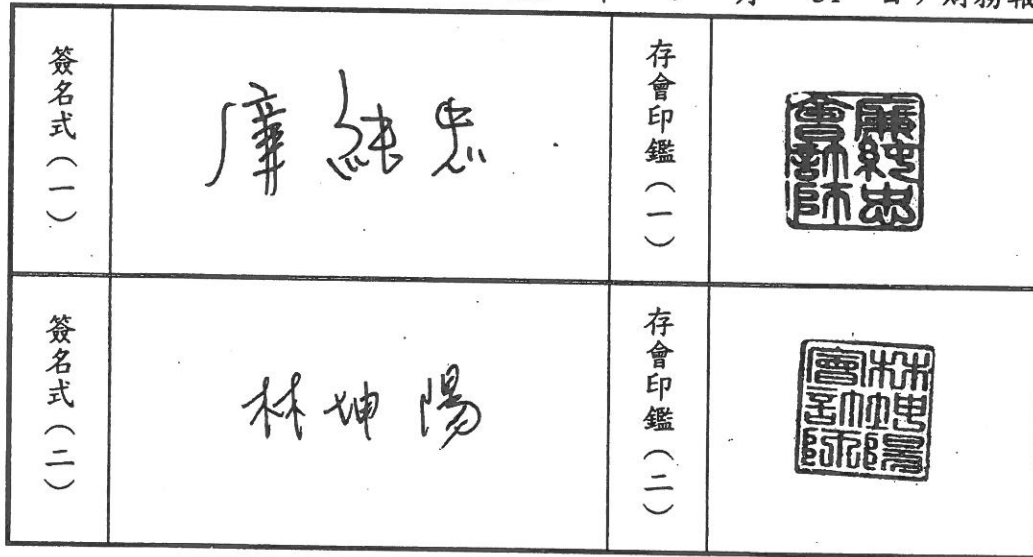 月 31 日，財務報
簽名式（一）
廉純忠
存會印鑑（一）
廉純忠
會計師
簽名式（二）
林坤陽
存會印鑑（二）
林坤陽
會計師